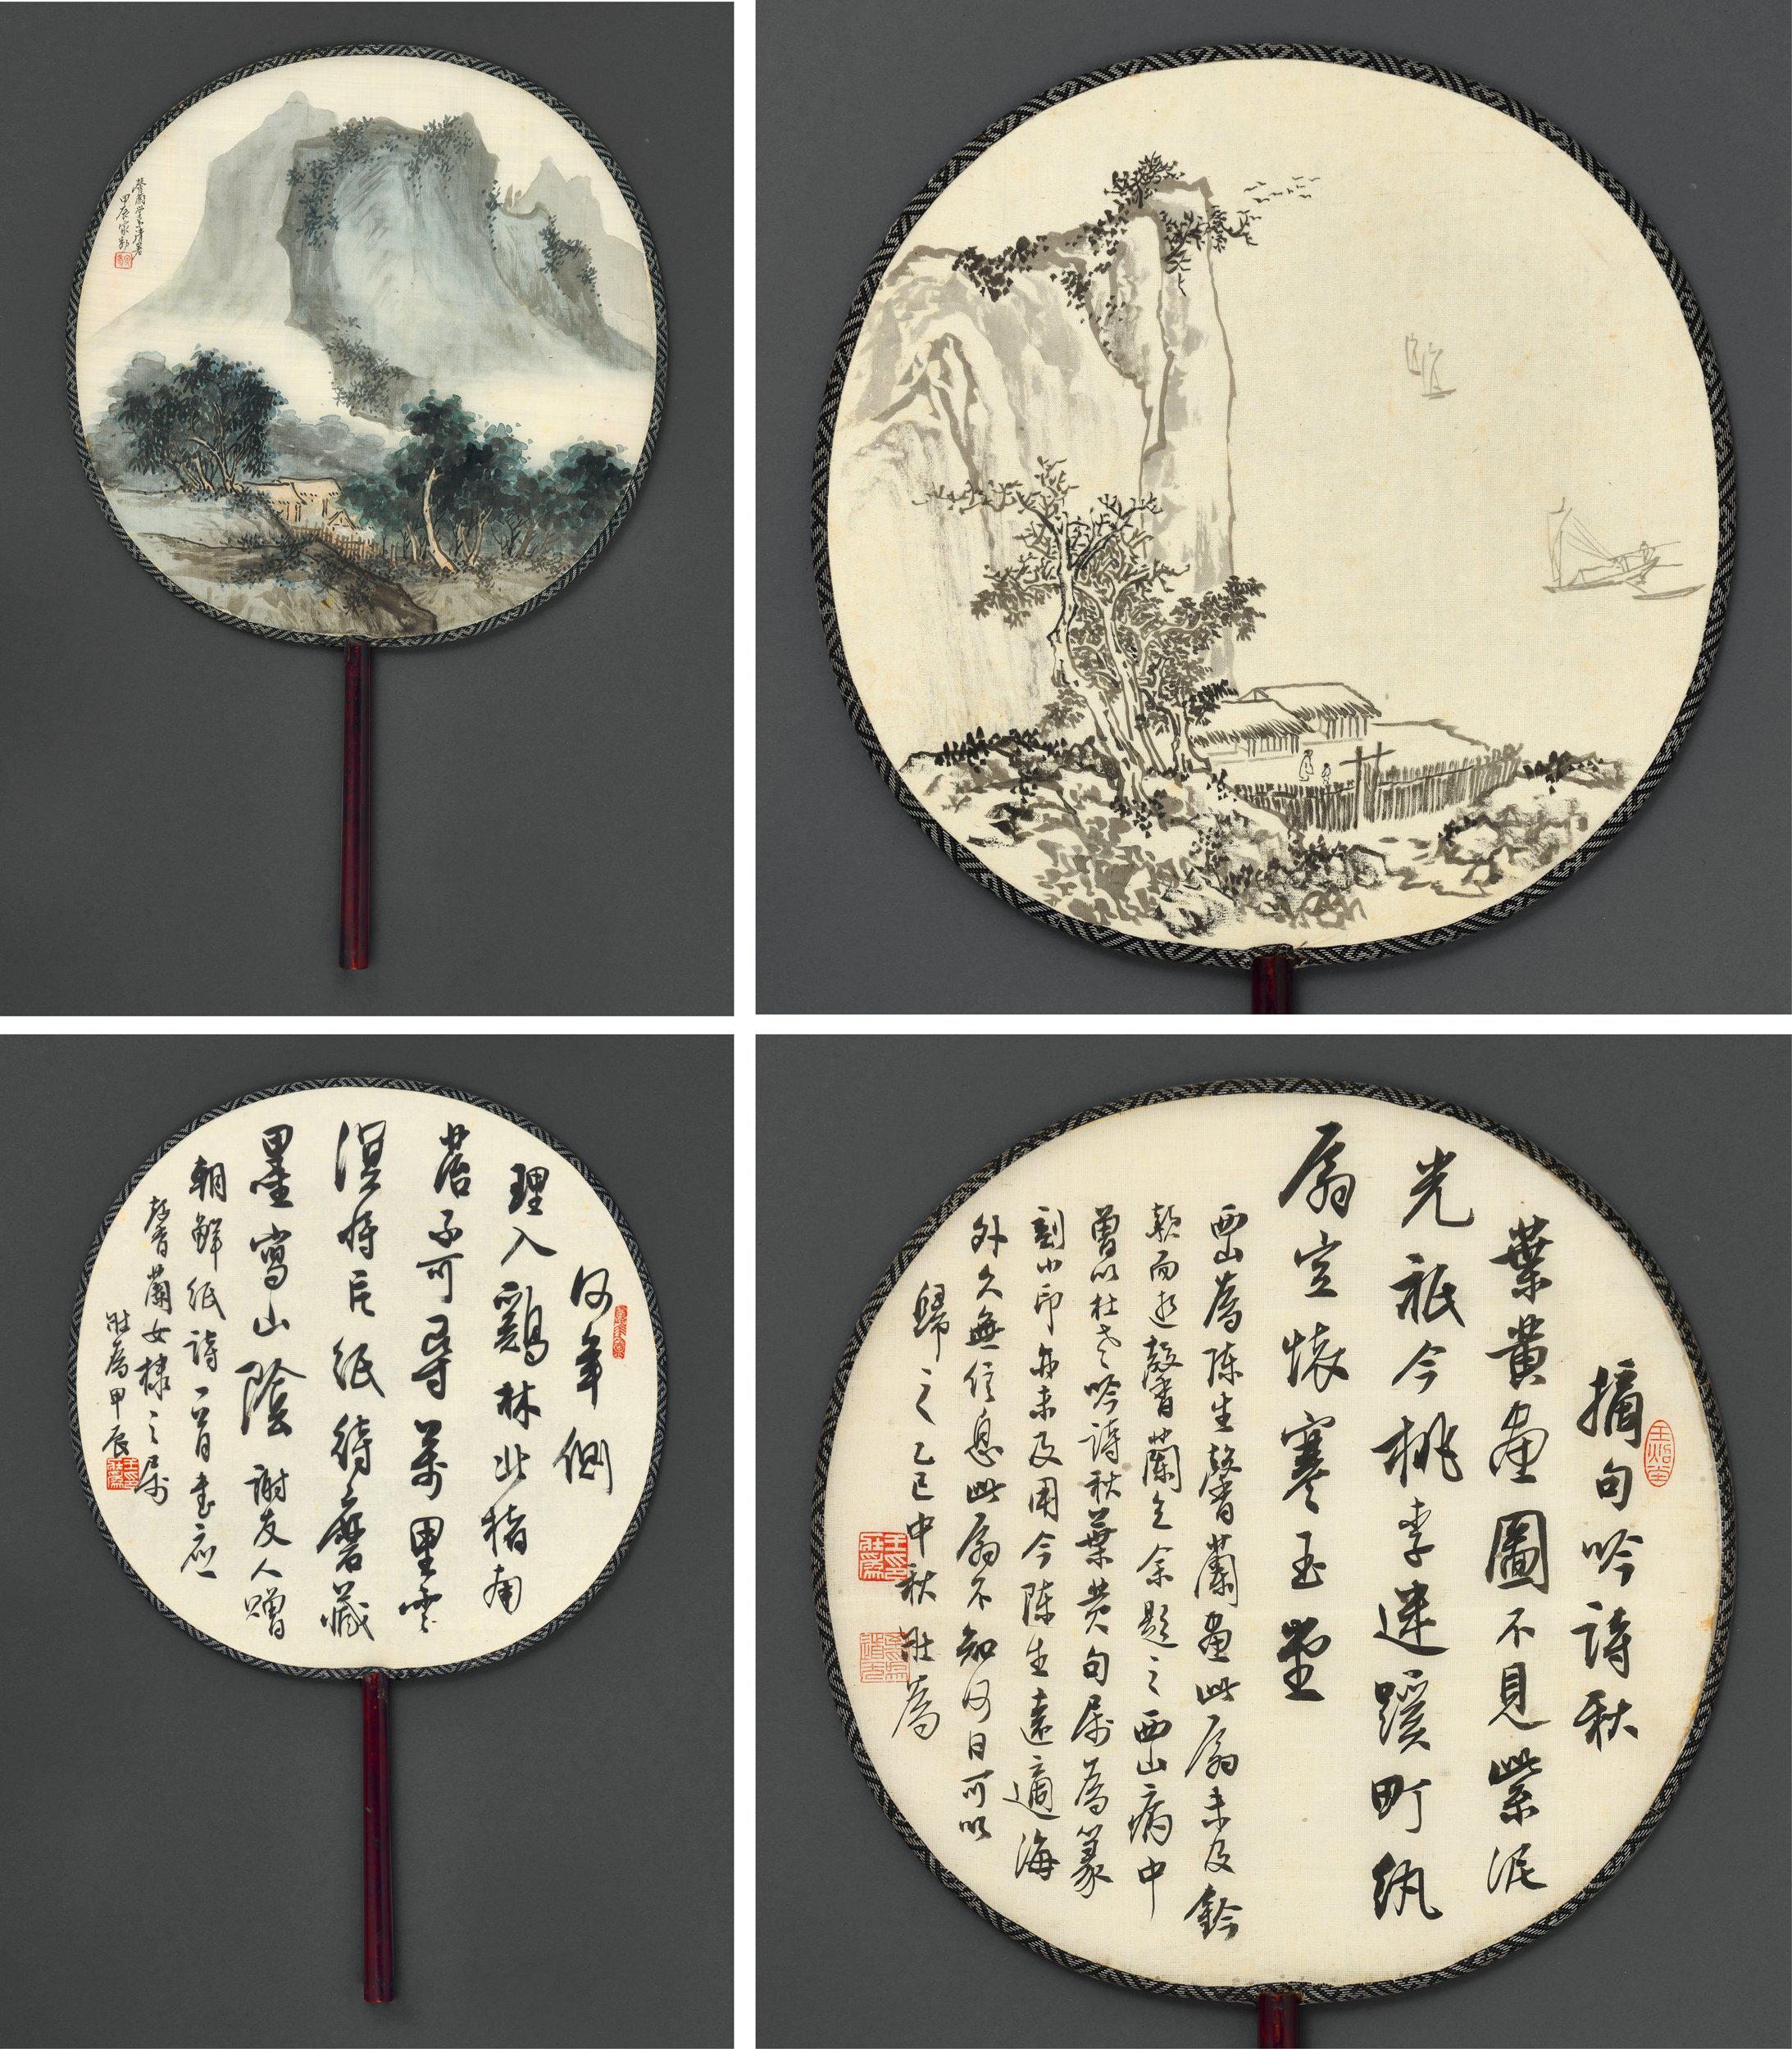 馨蘭
甲辰家勤
何年側
理入雞林北楮南
苔不可尋萬里雲
溟持片紙待磨藏
墨寫山陰 謝友人贈
朝鮮紙詩一首書應
馨蘭女棣之屬
壯為甲辰
摘句吟詩秋
葉黃畫圖不見紫泥
光祇今桃李迷蹊町紈
扇空懷寒玉堂
西山為陳生馨蘭畫此扇未及鈐
款而逝馨蘭乞余題之西山病中
曾以杜老吟詩秋葉黃句屬為篆
刻小印亦未及用今陳生遠適海
外久無信息此扇不知何日可以
歸之乙巳中秋壯為